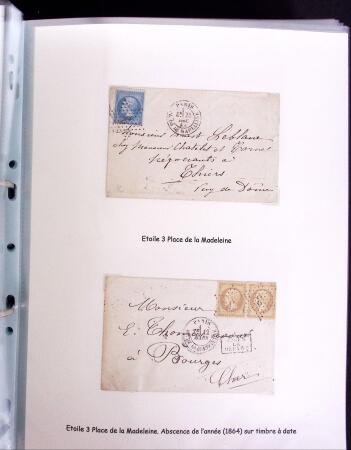 PARIS
Monsieur Ernest Leblanc
chez Messieurs Chatelet et Cornet
négociants à
Thiers
Puy de Dôme
Etoile 3 Place de la Madeleine
PARIS
Monsieur
E.
à Bourges
Cher
Etoile 3 Place de la Madeleine. Abscence de l'année (1864) sur timbre à date